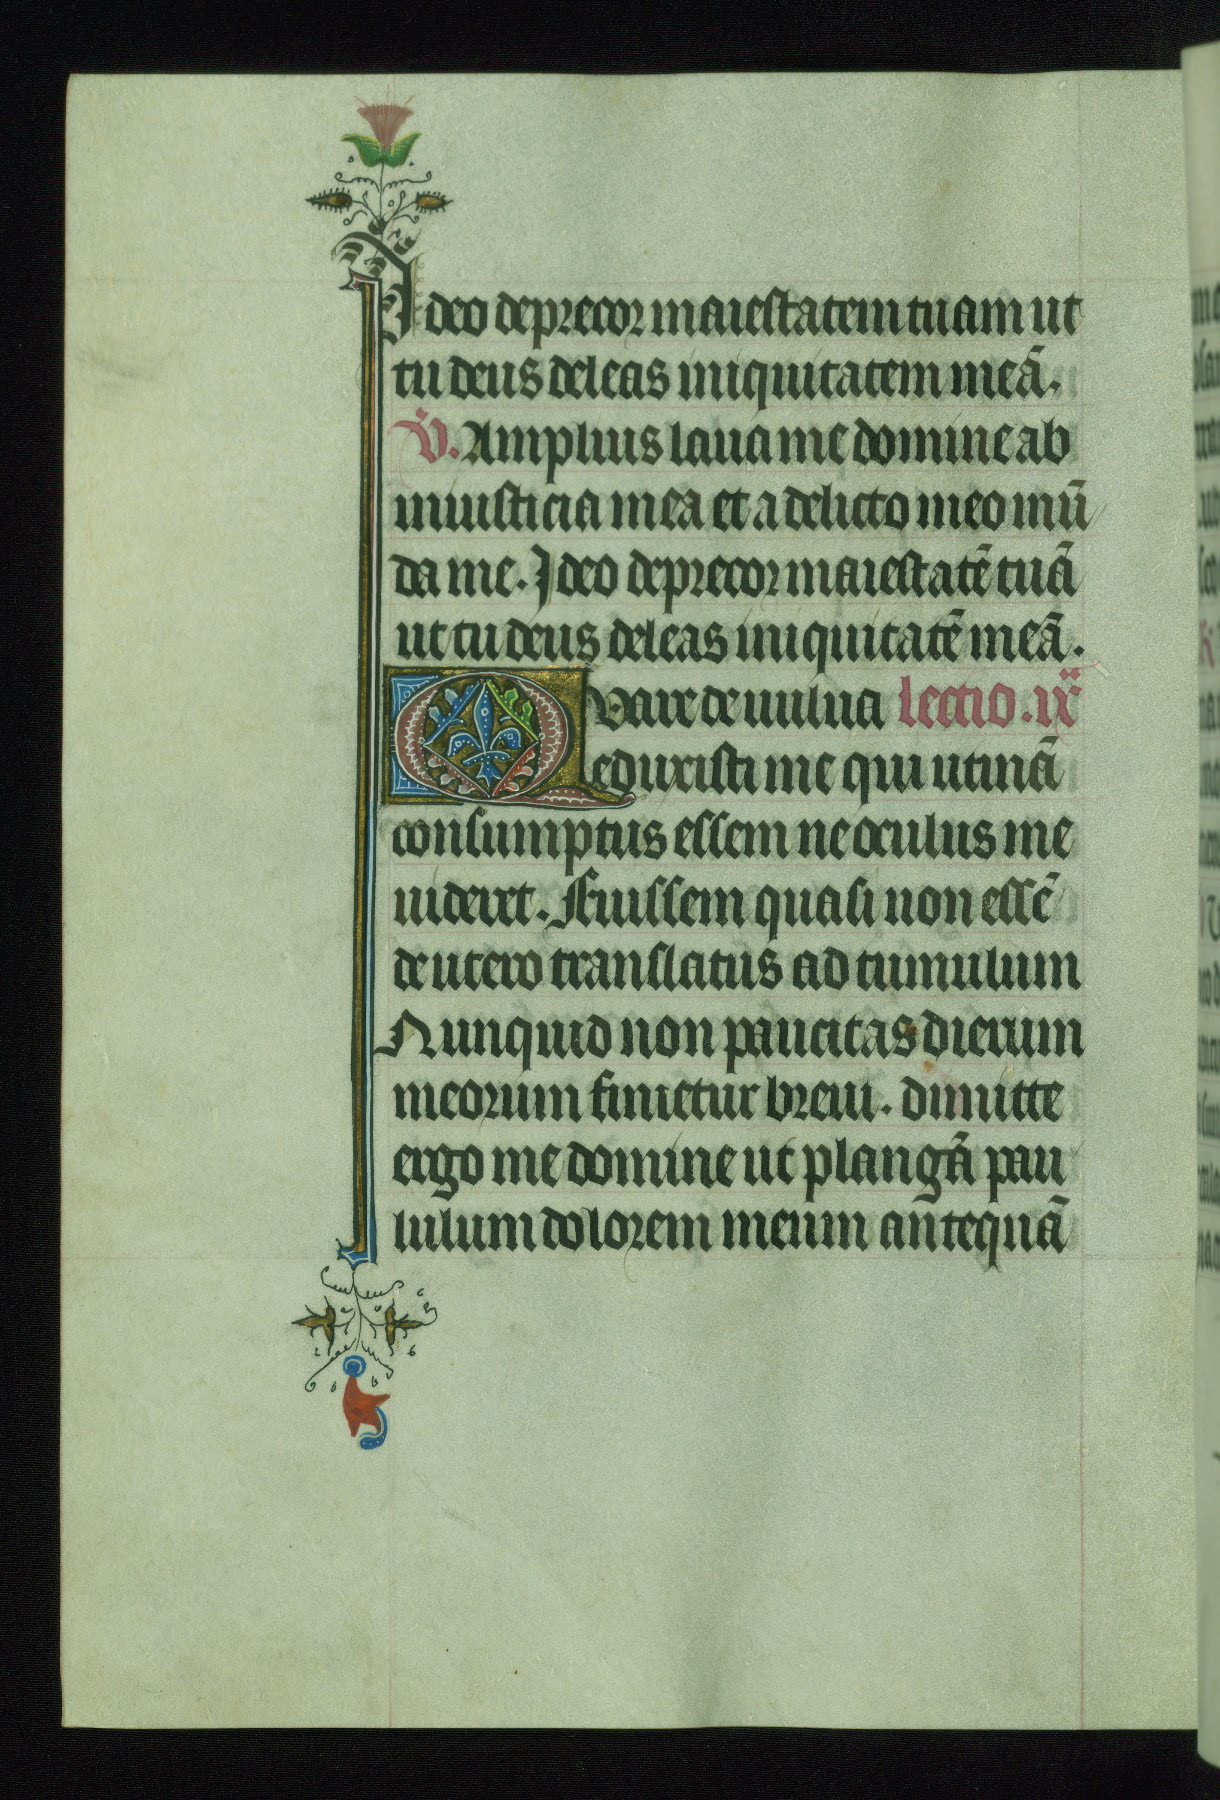 Ideo deprecor maiestatem tuam ut
tu deus deleas iniquitatem meā.
V̄. Amplius laua me domine ab
iniusticia mea et a delicto meo mū
da me. Ideo deprecor maiestatē tuā
ut tu deus deleas iniquitatē meā.
Quare de uulua Lectio .ix.
eduxisti me qui utinā
consumptus essem ne oculus me
uideret. Fuissem quasi non essē
de utero translatus ad tumulum
Nunquid non paucitas dierum
meorum finietur breui. dimitte
ergo me domine ut plangā pau
lulum dolorem meum antequā